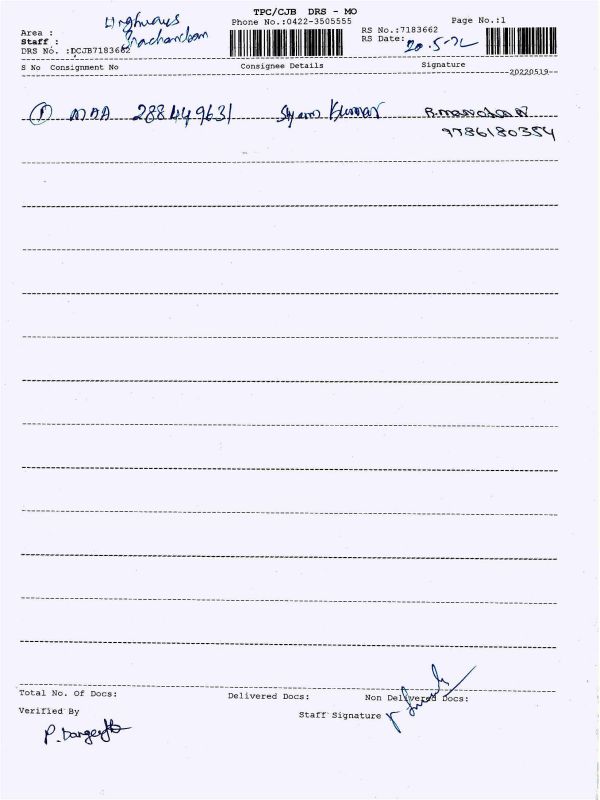 TPC/CJB DRS - MO
Phone No.:0422-3505555
Page No.:1
Area :
Staff :
DRS No. :DCJB7183662
RS No.:7183662
RS Date: 20.5-22
S No Consignment No Consignee Details Signature
20220519
① MAA 288449631 Shyam Kumar R.manohar
9786180354
Total No. Of Docs: Delivered Docs: Non Delivered Docs:
Verified By
Staff Signature